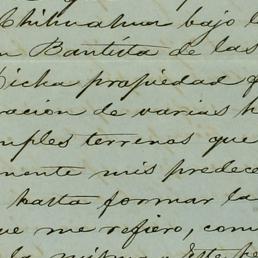 Chihuahua bajo l
n Bautista de las
Dicha propiedad
ración de varias h
mples terrenos que
mente mis predece
hasta formar la
ue me refiero, com
la misma